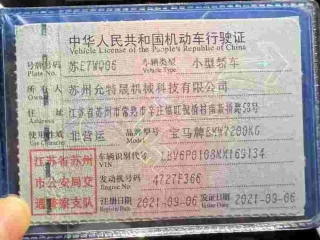 中华人民共和国机动车行驶证
Vehicle License of the People's Republic of China
号牌号码 苏E7WQ06 车辆类型 小型轿车
Plate No. Vehicle Type
所有人 苏州允特晟机械科技有限公司
Owner
住址 江苏省苏州市常熟市辛庄镇
Address
使用性质 非营运 品牌型号 宝马牌BMW7200KG
Model
江苏省苏州
市公安局交
通警察支队
车辆识别代号
VIN
发动机号码 4727F366
Engine No.
注册日期 2021-09-06 发证日期 2021-09-06
Register Date Issue Date